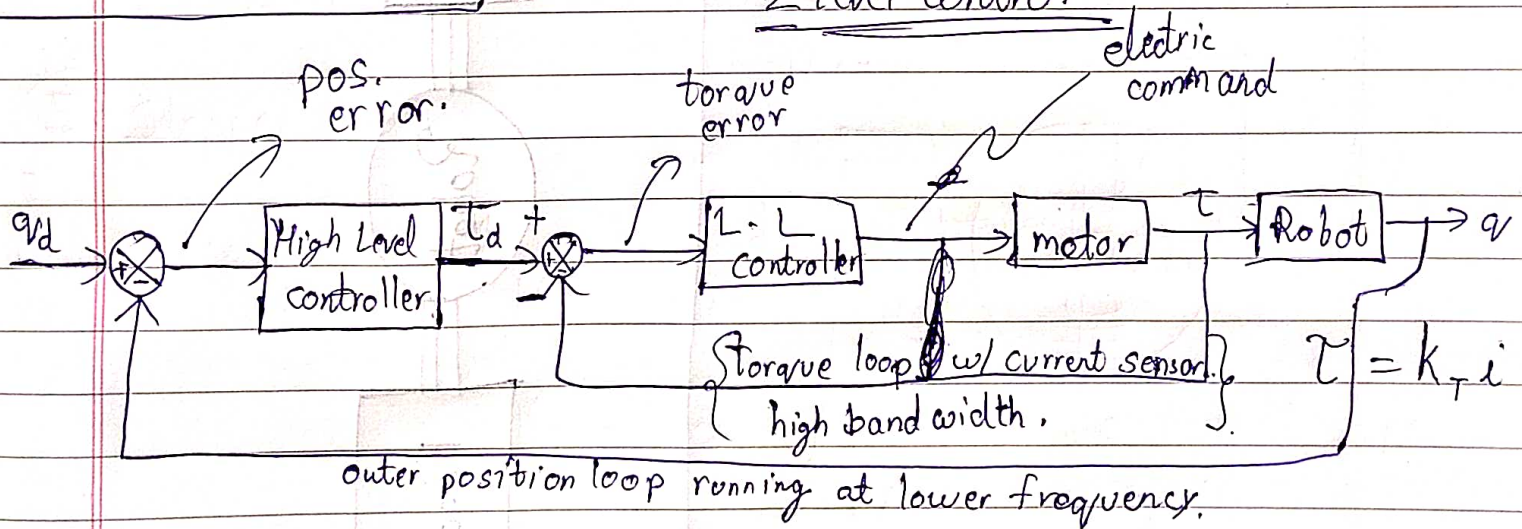 electric
command
pos.
error.
torque
error
qd
High Level
controller
τd
+
-
L-L
controller
motor
τ
Robot
q
torque loop w/ current sensor.
high band width.
τ = k_T i
outer position loop running at lower frequency.